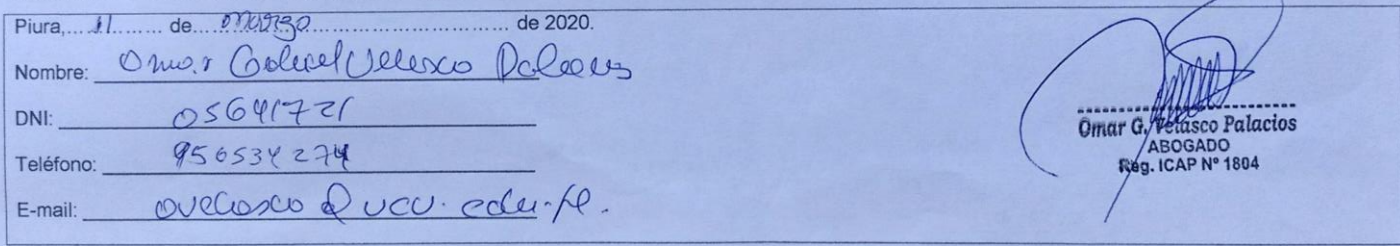 Piura,...11...... de....Marzo................................. de 2020.
Nombre: Omar Gabriel Velasco Palacios
DNI: 05641721
Teléfono: 956534274
E-mail: ovelasco@ucv.edu.pe.
Omar G. Velasco Palacios
ABOGADO
Reg. ICAP Nº 1804